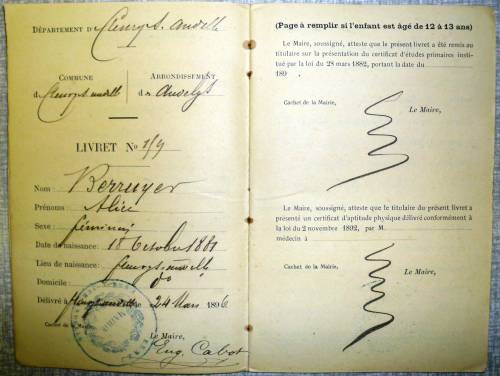 DÉPARTEMENT D Fleury s. andelle
COMMUNE
d Fleury s andelle
ARRONDISSEMENT
des Andelys
LIVRET No 119
Nom : Berruyer
Prénoms : Alice
Sexe : féminin
Date de naissance : 18 Octobre 1881
Lieu de naissance : fleury s. andelle
Domicile : do
Délivré à fleury s andelle le 24 Mars 1896
Cachet de la Mairie.
Le Maire,
Eug. Cabot
MAIRIE
EURE
(Page à remplir si l'enfant est âgé de 12 à 13 ans)
Le Maire, soussigné, atteste que le présent livret a été remis au
titulaire sur la présentation du certificat d'études primaires insti-
tué par la loi du 28 mars 1882, portant la date du
189
Cachet de la Mairie,
Le Maire,
Le Maire, soussigné, atteste que le titulaire du présent livret a
présenté un certificat d'aptitude physique délivré conformément à
la loi du 2 novembre 1892, par M.
médecin à
Cachet de la Mairie,
Le Maire,